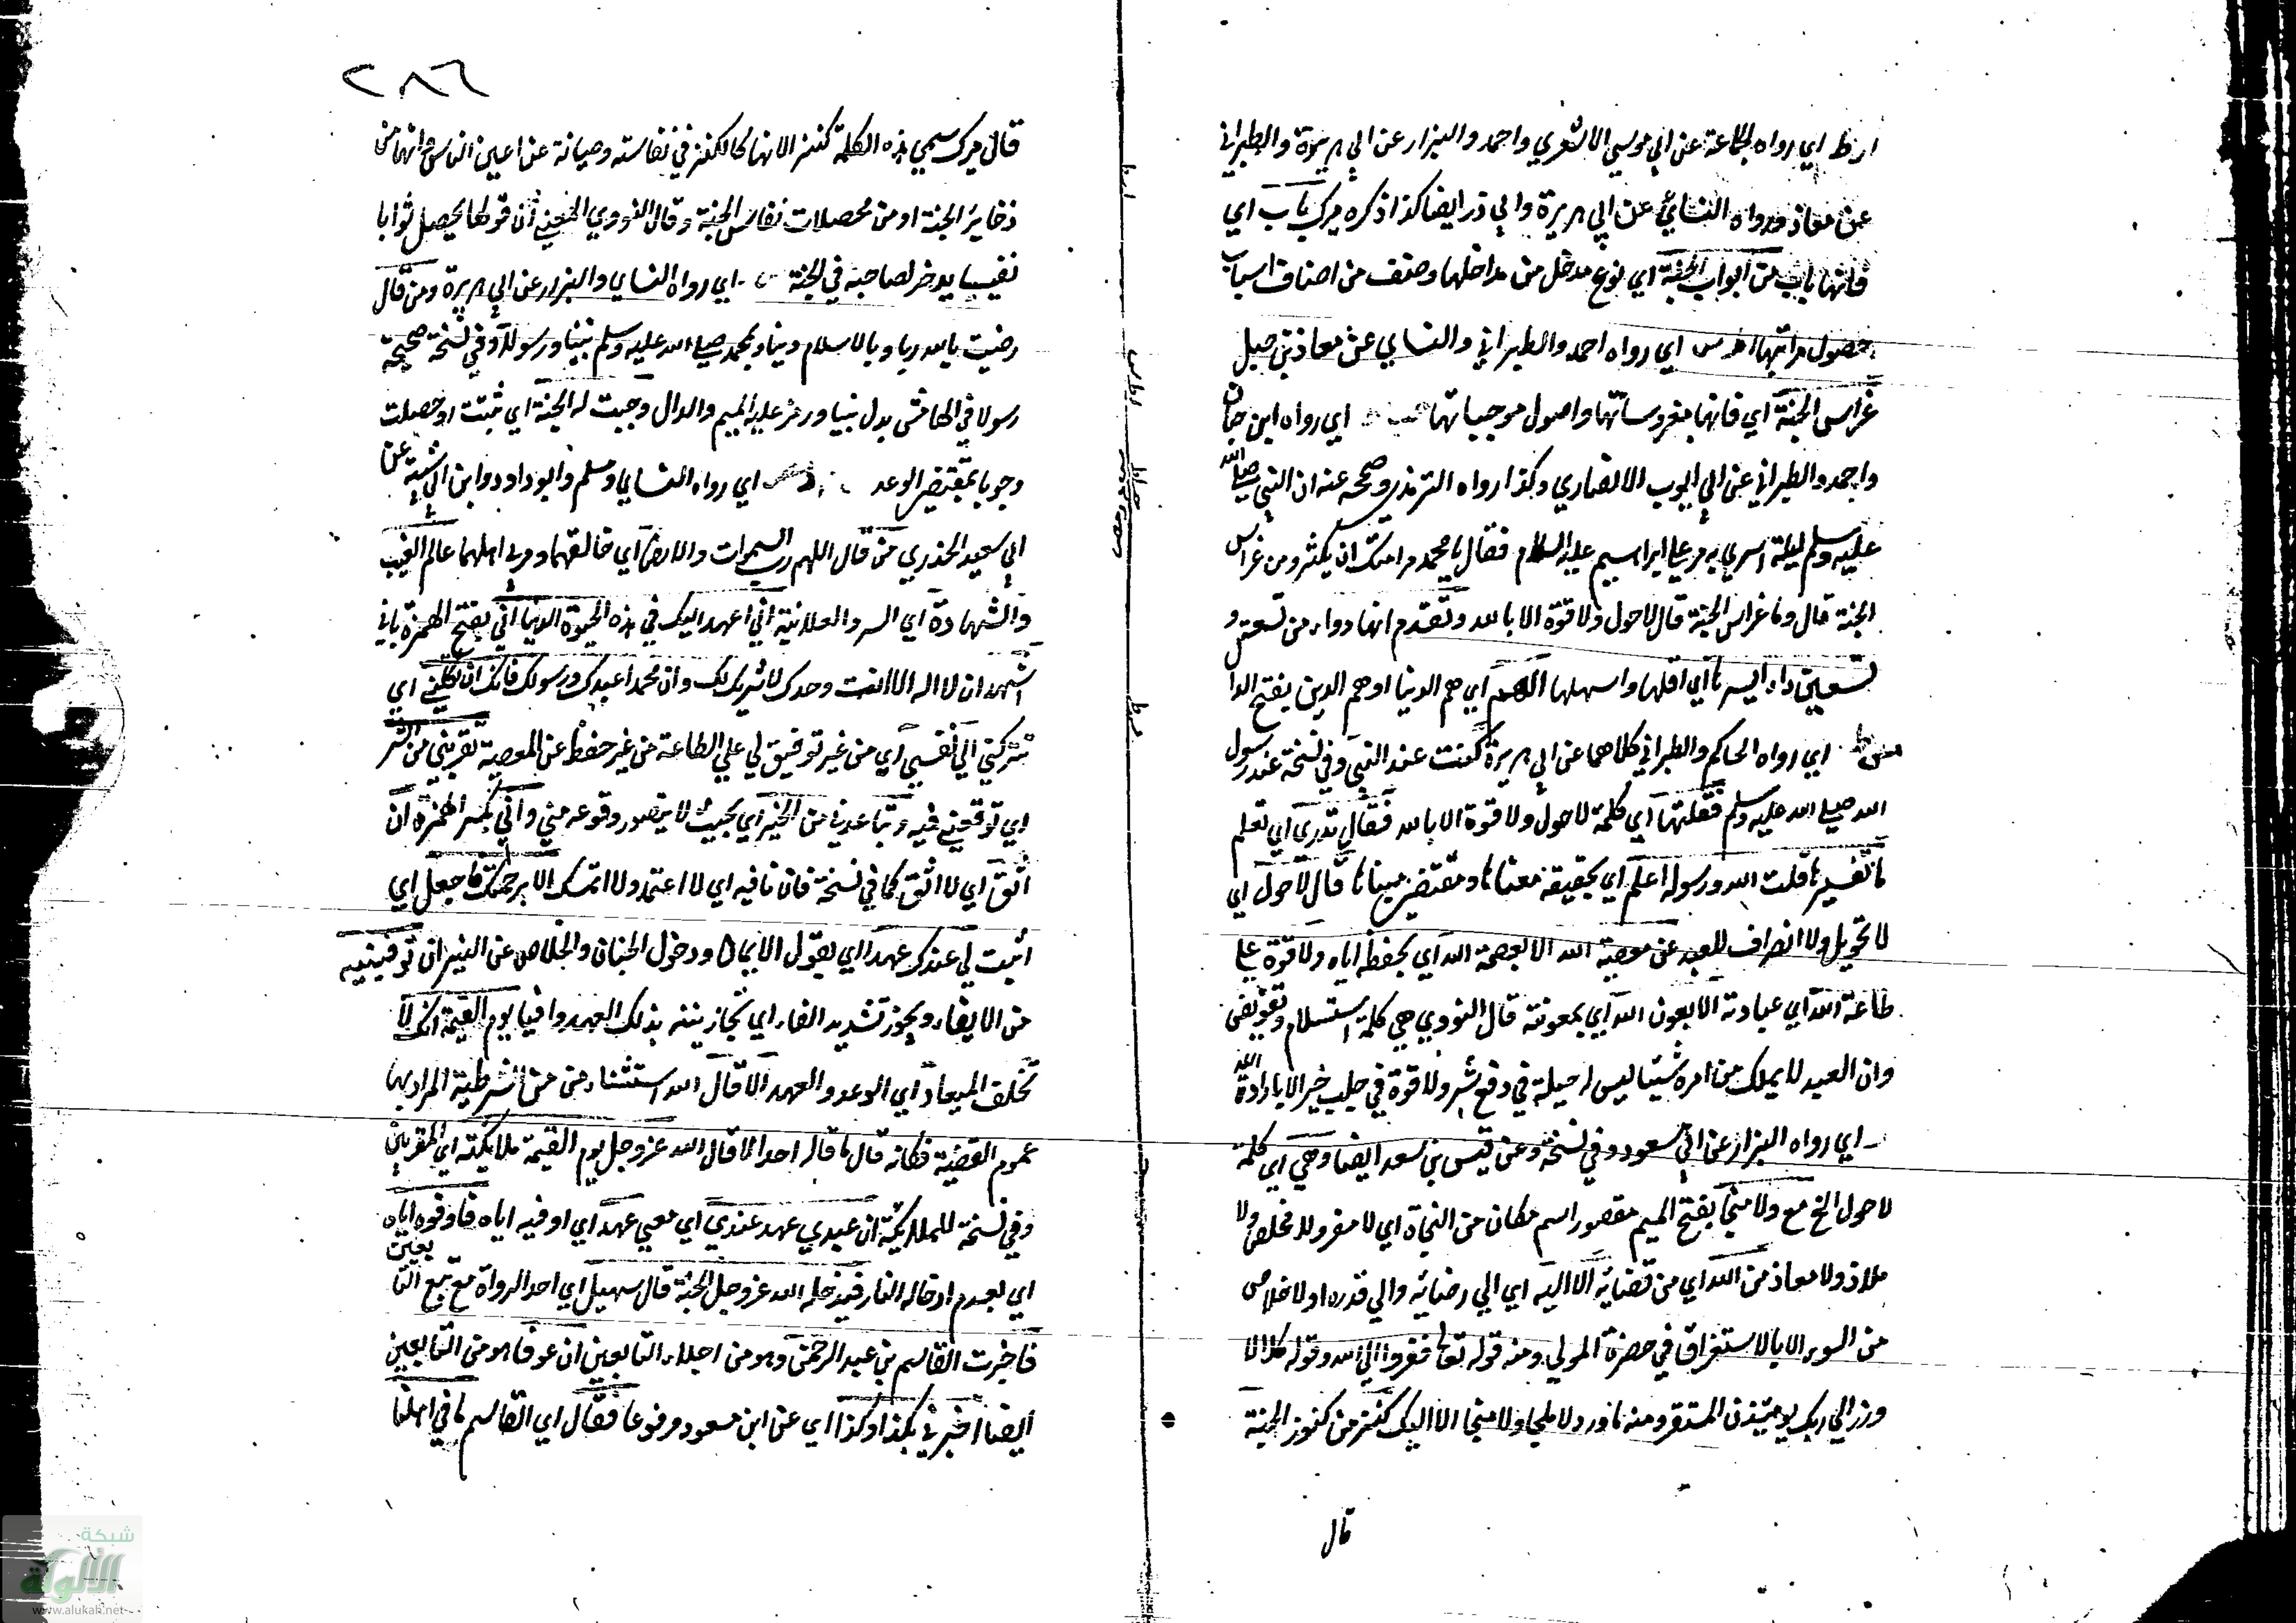 ار ط اي رواه الجماعة عن ابي موسي الاشعري واحمد والبزار عن ابي هريرة والطبراني
عن معاذ ورواه النسائي عن ابي هريرة وابي ذر ايضا كذا ذكره ميرك باب اي
فانها باب من ابواب الجنة اي نوع مدخل من مداخلها وصنف من اصناف اسباب
حصول مراتبها ا ط س اي رواه احمد والطبراني والنساي عن معاذ بن جبل
غراس الجنة اي فانها مغروساتها واصول موجباتها حب اي رواه ابن حبان
واحمد والطبراني عن ابي ايوب الانصاري وكذا رواه الترمذي وصححه عنه ان النبي صلي الله
عليه وسلم ليلة اسري به مر علي ابراهيم عليه السلام فقال يا محمد مر امتك ان يكثروا من غراس
الجنة قال وما غراس الجنة قال لاحول ولا قوة الا بالله وتقدم انها دواء من تسعة و
تسعين داء ايسرها اي اقلها واسهلها الهم اي هم الدنيا او هم الدين بفتح الدا
مس ط اي رواه الحاكم والطبراني كلاهما عن ابي هريرة كنت عند النبي وفي نسخة عند رسول
الله صلي الله عليه وسلم فقلتها اي كلمة لاحول ولا قوة الا بالله فقال تدري اي تعلم
ما تفسيرها قلت الله ورسوله اعلم اي بحقيقة معناها ومقتضي مبناها قال لا حول اي
لا تحويل ولا انصراف للعبد عن معصية الله الا بعصمة الله اي بحفظه اياه ولا قوة علي
طاعة الله اي عبادته الا بعون الله اي بمعونته قال النووي هي كلمة استسلام وتفويض
وان العبد لا يملك من امره شيئا ليس له حيلة في دفع شر ولا قوة في جلب خير الا بارادة الله
ر اي رواه البزار عن ابن مسعود وفي نسخة وعن قيس بن سعد ايضا وهي اي كلمة
لا حول الخ مع ولا منجا بفتح الميم مقصور اسم مكان من النجاة اي لا مفر ولا مخلص ولا
ملاذ ولا معاذ من الله اي من قضائه الا اليه اي الي رضائه والي قدره او لا خلاص
من السوي الا بالاستغراق في حضرة المولي ومنه قوله تعالي ففروا الي الله وقوله كلا لا
وزر الي ربك يومئذن المستقر ومنه ما ورد لا ملجا ولا منجا الا اليك كنز من كنوز الجنة
قال
٢٨٦
قال ميرك سمي هذه الكلمة كنزا لانها كالكنز في نفاسته وصيانته عن اعين الناس او انها من
ذخاير الجنة او من محصلات نفاس الجنة وقال النووي المعني ان قولها يحصل ثوابا
نفيسا يدخر لصاحبه في الجنة س ر اي رواه النساي والبزار عن ابي هريرة ومن قال
رضيت بالله ربا وبالاسلام دينا وبمحمد صلي الله عليه وسلم نبيا ورسولا وفي نسخة صحيحة
رسولا في الهامش بدل نبيا ورمز عليه الميم والدال وجبت له الجنة اي ثبتت او حصلت
وجوبا بمقتضي الوعد اي رواه النساي ومسلم وابو داود وابن ابي شيبة عن
ابي سعيد الخذري من قال اللهم رب السموات والارض اي خالقهما ومربي اهلهما عالم الغيب
والشهادة اي السر والعلانية اني اعهد اليك في هذه الحيوة الدنيا اني بفتح الهمزة باني
اشهد ان لا اله الا انت وحدك لا شريك لك وان محمدا عبدك ورسولك فانك ان تكلني اي
تتركني الي نفسي اي من غير توفيق لي علي الطاعة من غير حفظ عن المعصية تقربني من الشر
اي توقعني فيه وتباعدني من الخير اي بحيث لا يتصور وقوعه مني واني بكسر الهمزة ان
اثق اي لا اثق كما في نسخة فان نافيه اي لا اعتمد ولا اتمسك الا برحمتك فاجعل اي
اثبت لي عندك عهدا اي بقبول الايمان ودخول الجنان والخلاص عن النيران توفينيه
من الايفاء ويجوز تشديد الفاء اي تجازيننه بذلك العهد وافيا يوم القيمة انك لا
تخلف الميعاد اي الوعد والعهد الا قال الله استثناء من من الشرطية المراد بها
عموم القضية فكانه قال ما قاله احد الا قال الله عز وجل يوم القيمة ملايكته اي المقربين
وفي نسخة للملائكة ان عبدي عهد عندي اي معي عهدا اي اوفيه اياه فاوفوه اياه
اي بعدم ادخاله النار فيدخله الله عز وجل الجنة قال سهيل اي احد الرواة مع تبع التا بعين
فاخبرت القاسم بن عبد الرحمن وهو من اجلاء التابعين ان عوفا هو من التابعين
ايضا اخبرني بكذا وكذا اي عن ابن مسعود مرفوعا فقال اي القاسم ما في اهلنا
شبكة
الألوكة
www.alukah.net